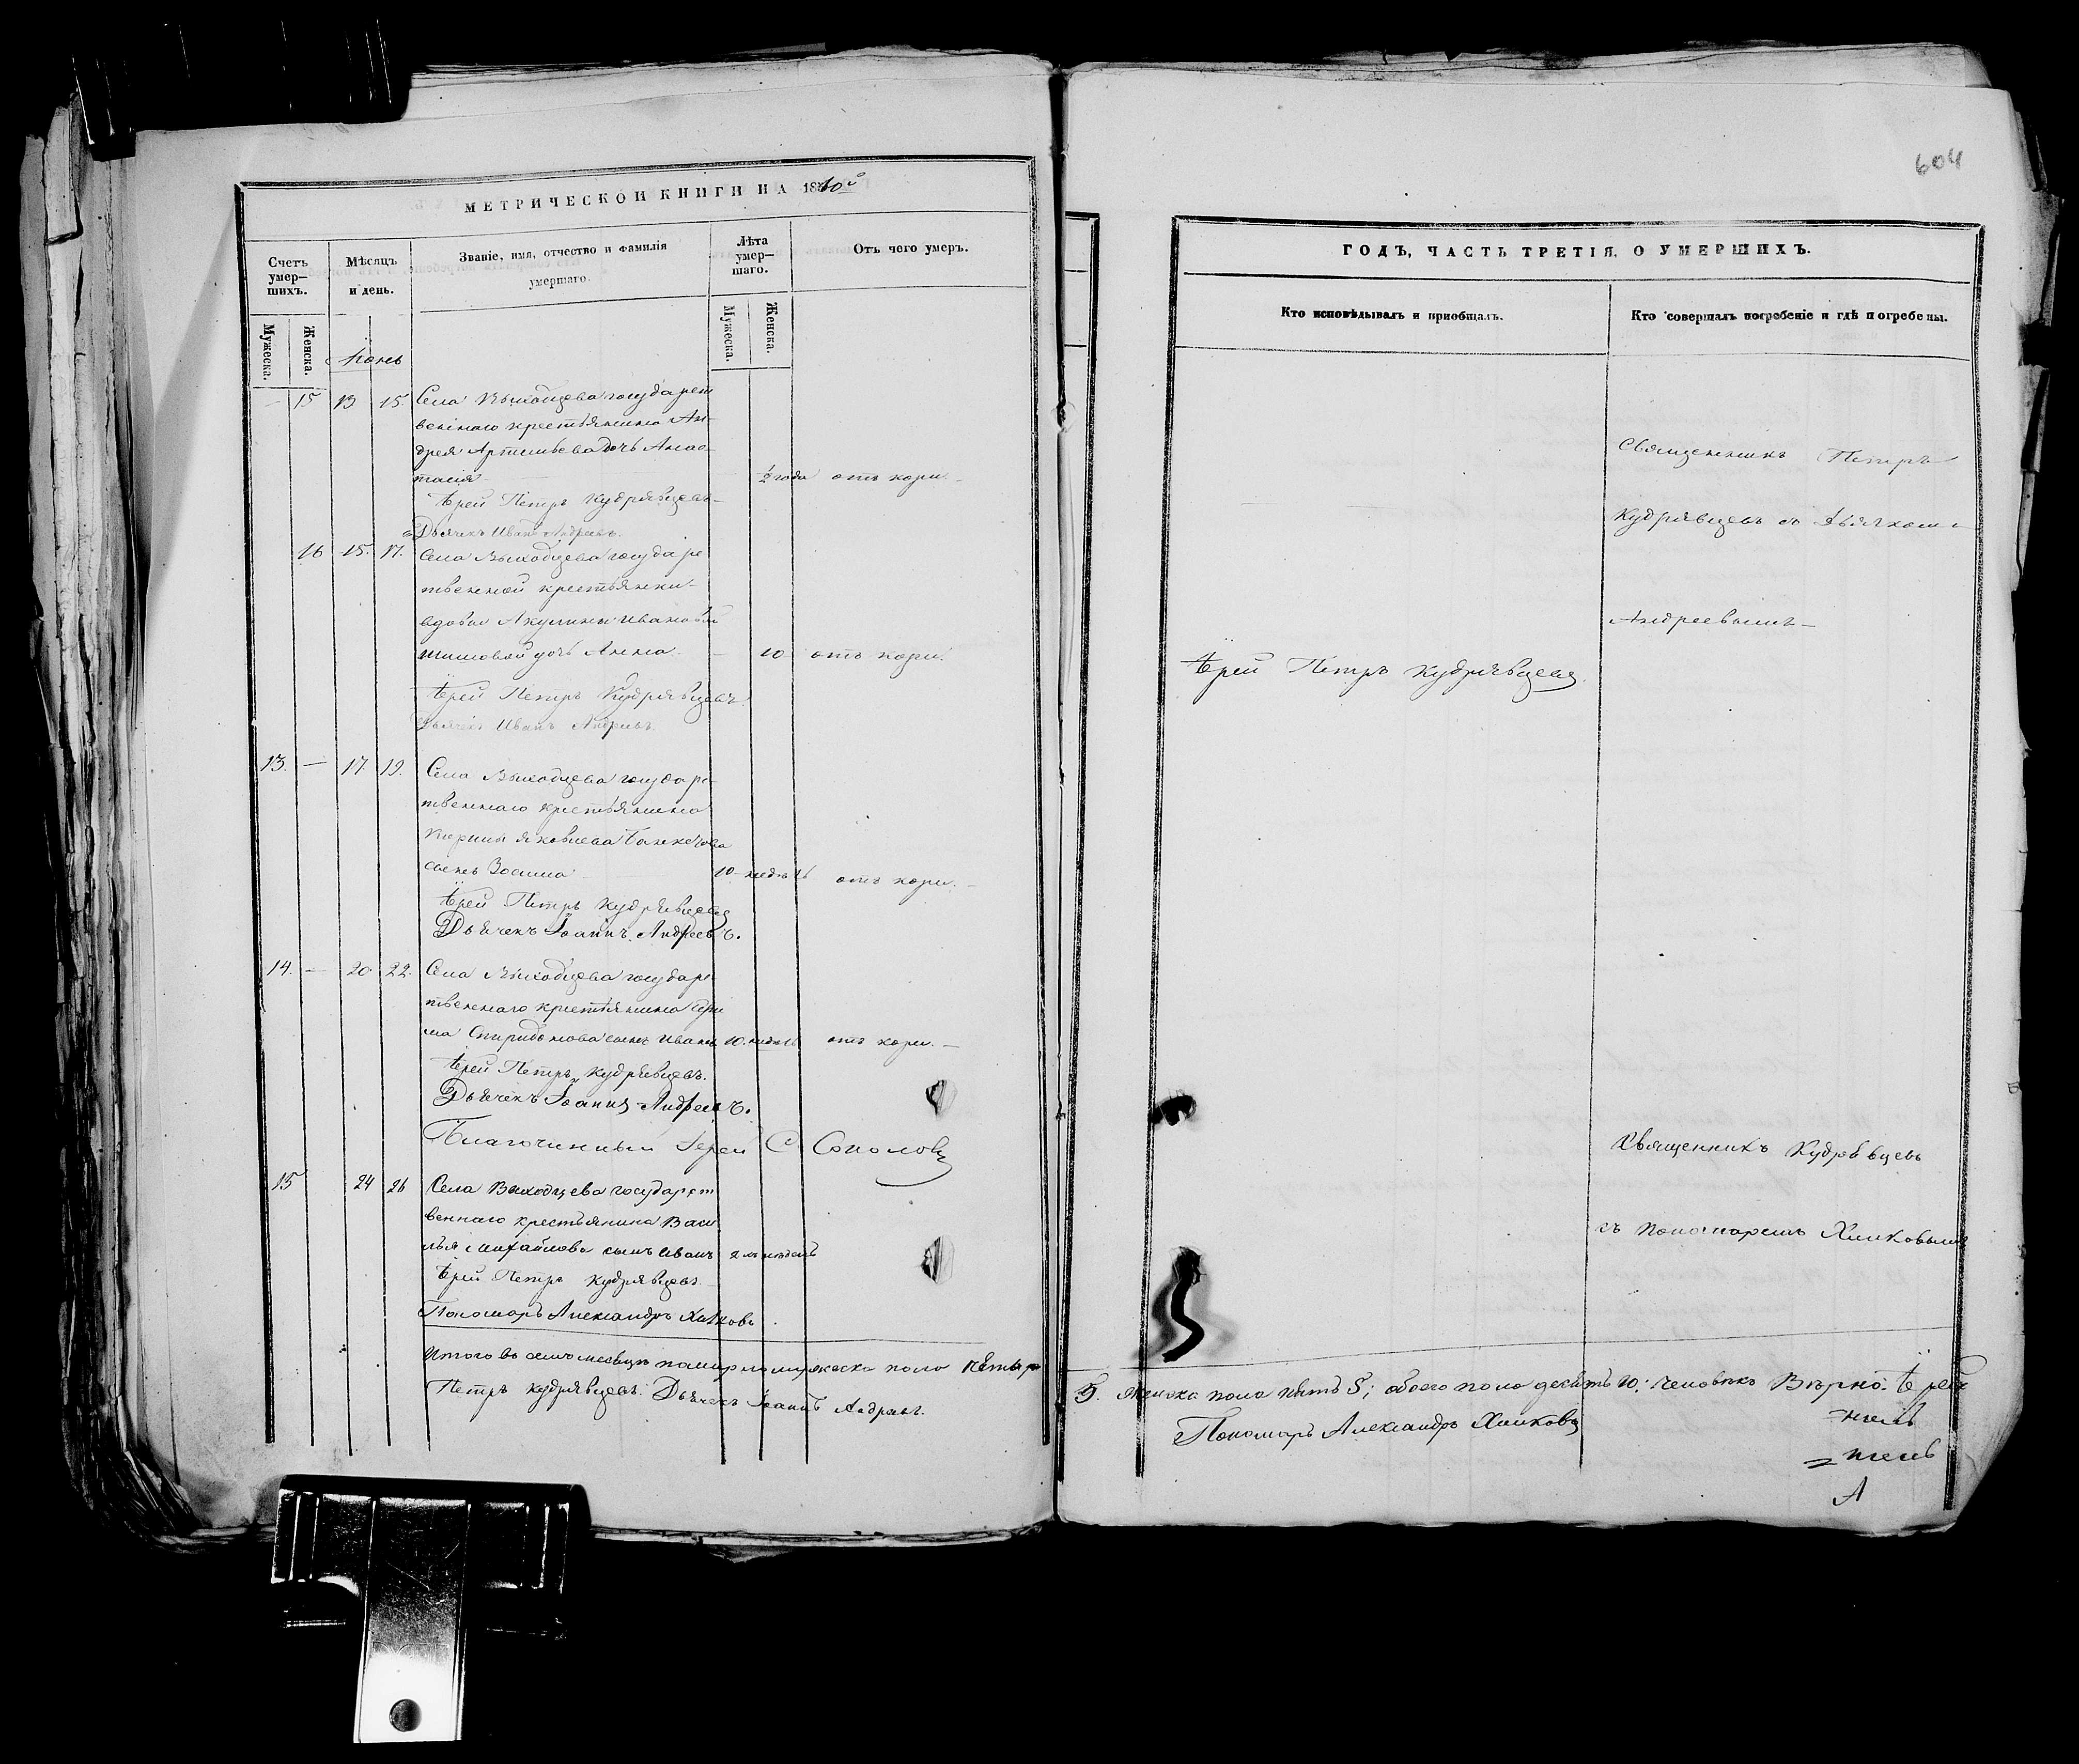 МЕТРИЧЕСКОЙ КНИГИ НА 1860й
Счетъ умер-шихъ.
Мѣсяцъ и день.
Званіе, имя, отчество и фамилія умершаго.
Лѣта умер-шаго.
Отъ чего умеръ.
Мужеска.
Женска.
Мужеска.
Женска.
Іюнь
— 15 13 15. Села Выходцева государст
веннаго крестьянина Ан-
дрея Артемьева дочь Анас-
тасія — ½ года отъ кори. —
Іерей Петръ Кудрявцевъ
Дьячекъ Иванъ Андреевъ.
16 15. 17. Села Выходцева государс
твенной крестьянки
вдовы Акулины Ивановой
дочь Анна. — 10 отъ кори.
Іерей Петръ Кудрявцевъ.
Дьячекъ Иванъ Андреевъ.
13. — 17 19. Села Выходцева государс
твеннаго крестьянина
Яковлева
сынъ Зосима 10 недѣль отъ кори. —
Іерей Петръ Кудрявцевъ
Дьячекъ Іоаннъ Андреевъ.
14. — 20 22. Села Выходцева государс
твеннаго крестьянина
Спиридонова сынъ Иванъ 10. недѣль отъ кори. —
Іерей Петръ Кудрявцевъ.
Дьячекъ Іоаннъ Андреевъ.
Благочинный Іерей С Соколовъ
15 24 26 Села Выходцева государст
веннаго крестьянина Васи
лья Михайлова сынъ Иванъ 2 недѣль
Іерей Петръ Кудрявцевъ.
Пономарь Александръ Хилковъ.
Итого въ семъ месяцѣ померло мужеска пола
Петръ Кудрявцевъ. Дьячекъ Іоаннъ Андреевъ.
604
ГОДЪ, ЧАСТЬ ТРЕТІЯ, О УМЕРШИХЪ.
Кто исповѣдывалъ и пріобщалъ.
Кто совершалъ погребеніе и гдѣ погребены.
Священникъ Петръ
Кудрявцевъ съ дьячкомъ
Андреевымъ —
Іерей Петръ Кудрявцевъ.
Священникъ Кудрявцевъ
съ пономаремъ Хилковымъ
5. женска пола пять 5; обоего пола десять 10: человѣкъ Вѣрно: Іерей
Пономарь Александръ Хилковъ
А